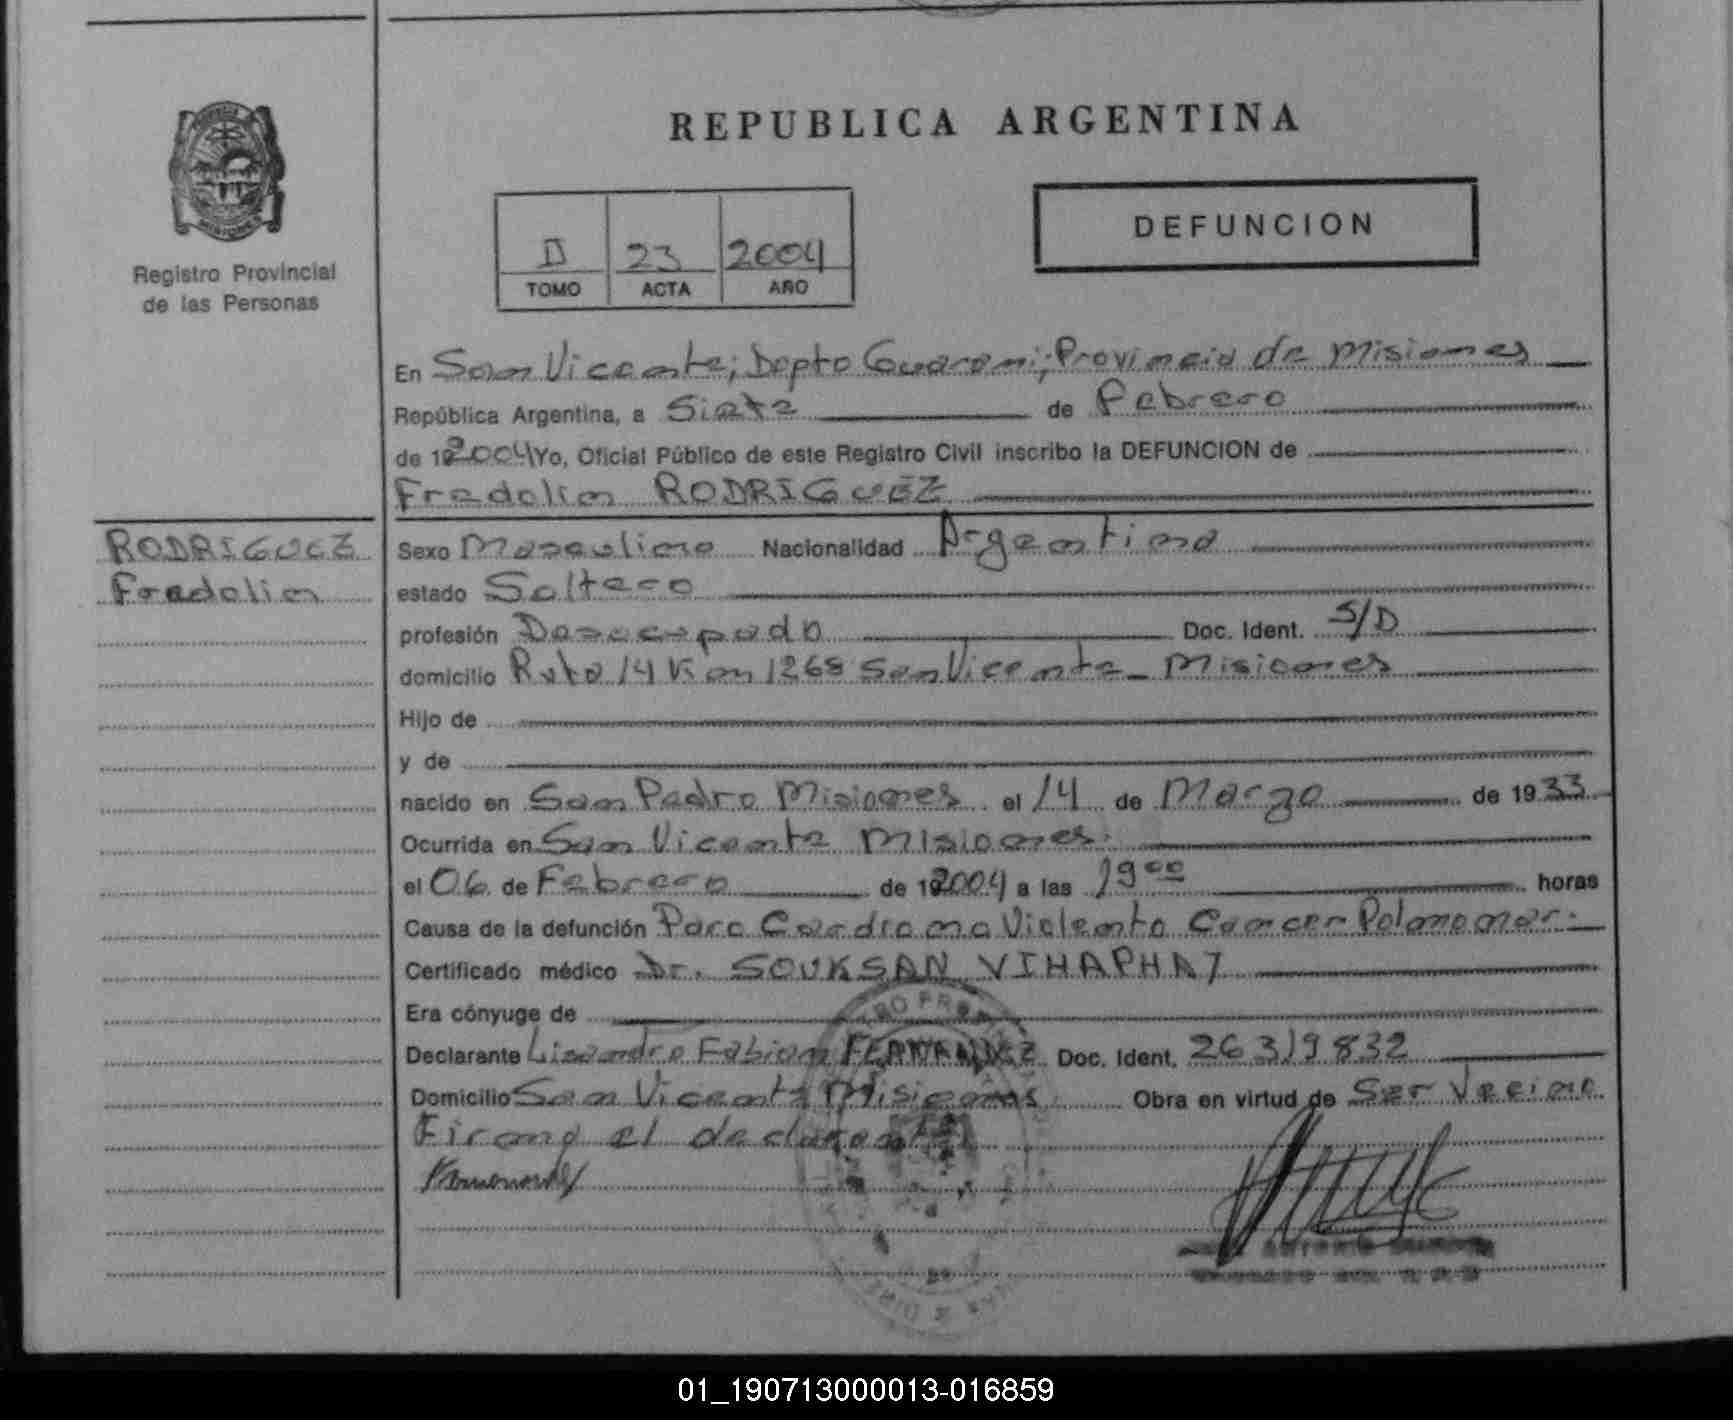 REPUBLICA ARGENTINA
DEFUNCION
Registro Provincial
de las Personas
D 23 2004
TOMO ACTA AÑO
En San Vicente; Depto Guarani; Provincia de Misiones
República Argentina, a Siete de Febrero
de 2004 Yo, Oficial Público de este Registro Civil inscribo la DEFUNCION de
Fredolin RODRIGUEZ
RODRIGUEZ
Fredolin
Sexo Masculino Nacionalidad Argentino
estado Soltero
profesión Desocupado Doc. Ident. S/D
domicilio Ruta 14 Km 1268 San Vicente - Misiones
Hijo de
y de
nacido en San Pedro Misiones el 14 de Marzo de 1933
Ocurrida en San Vicente Misiones.
el 06 de Febrero de 2004 a las 19 00 horas
Causa de la defunción Paro Cardiaco Violento Cancer Pulmonar.
Certificado médico Dr. SOUKSAN VIHAPHAT
Era cónyuge de
Declarante Lisandro Fabian FERNANDEZ Doc. Ident. 26319832
Domicilio San Vicente Misiones Obra en virtud de Ser Vecino
Firma el declarante
01_190713000013-016859